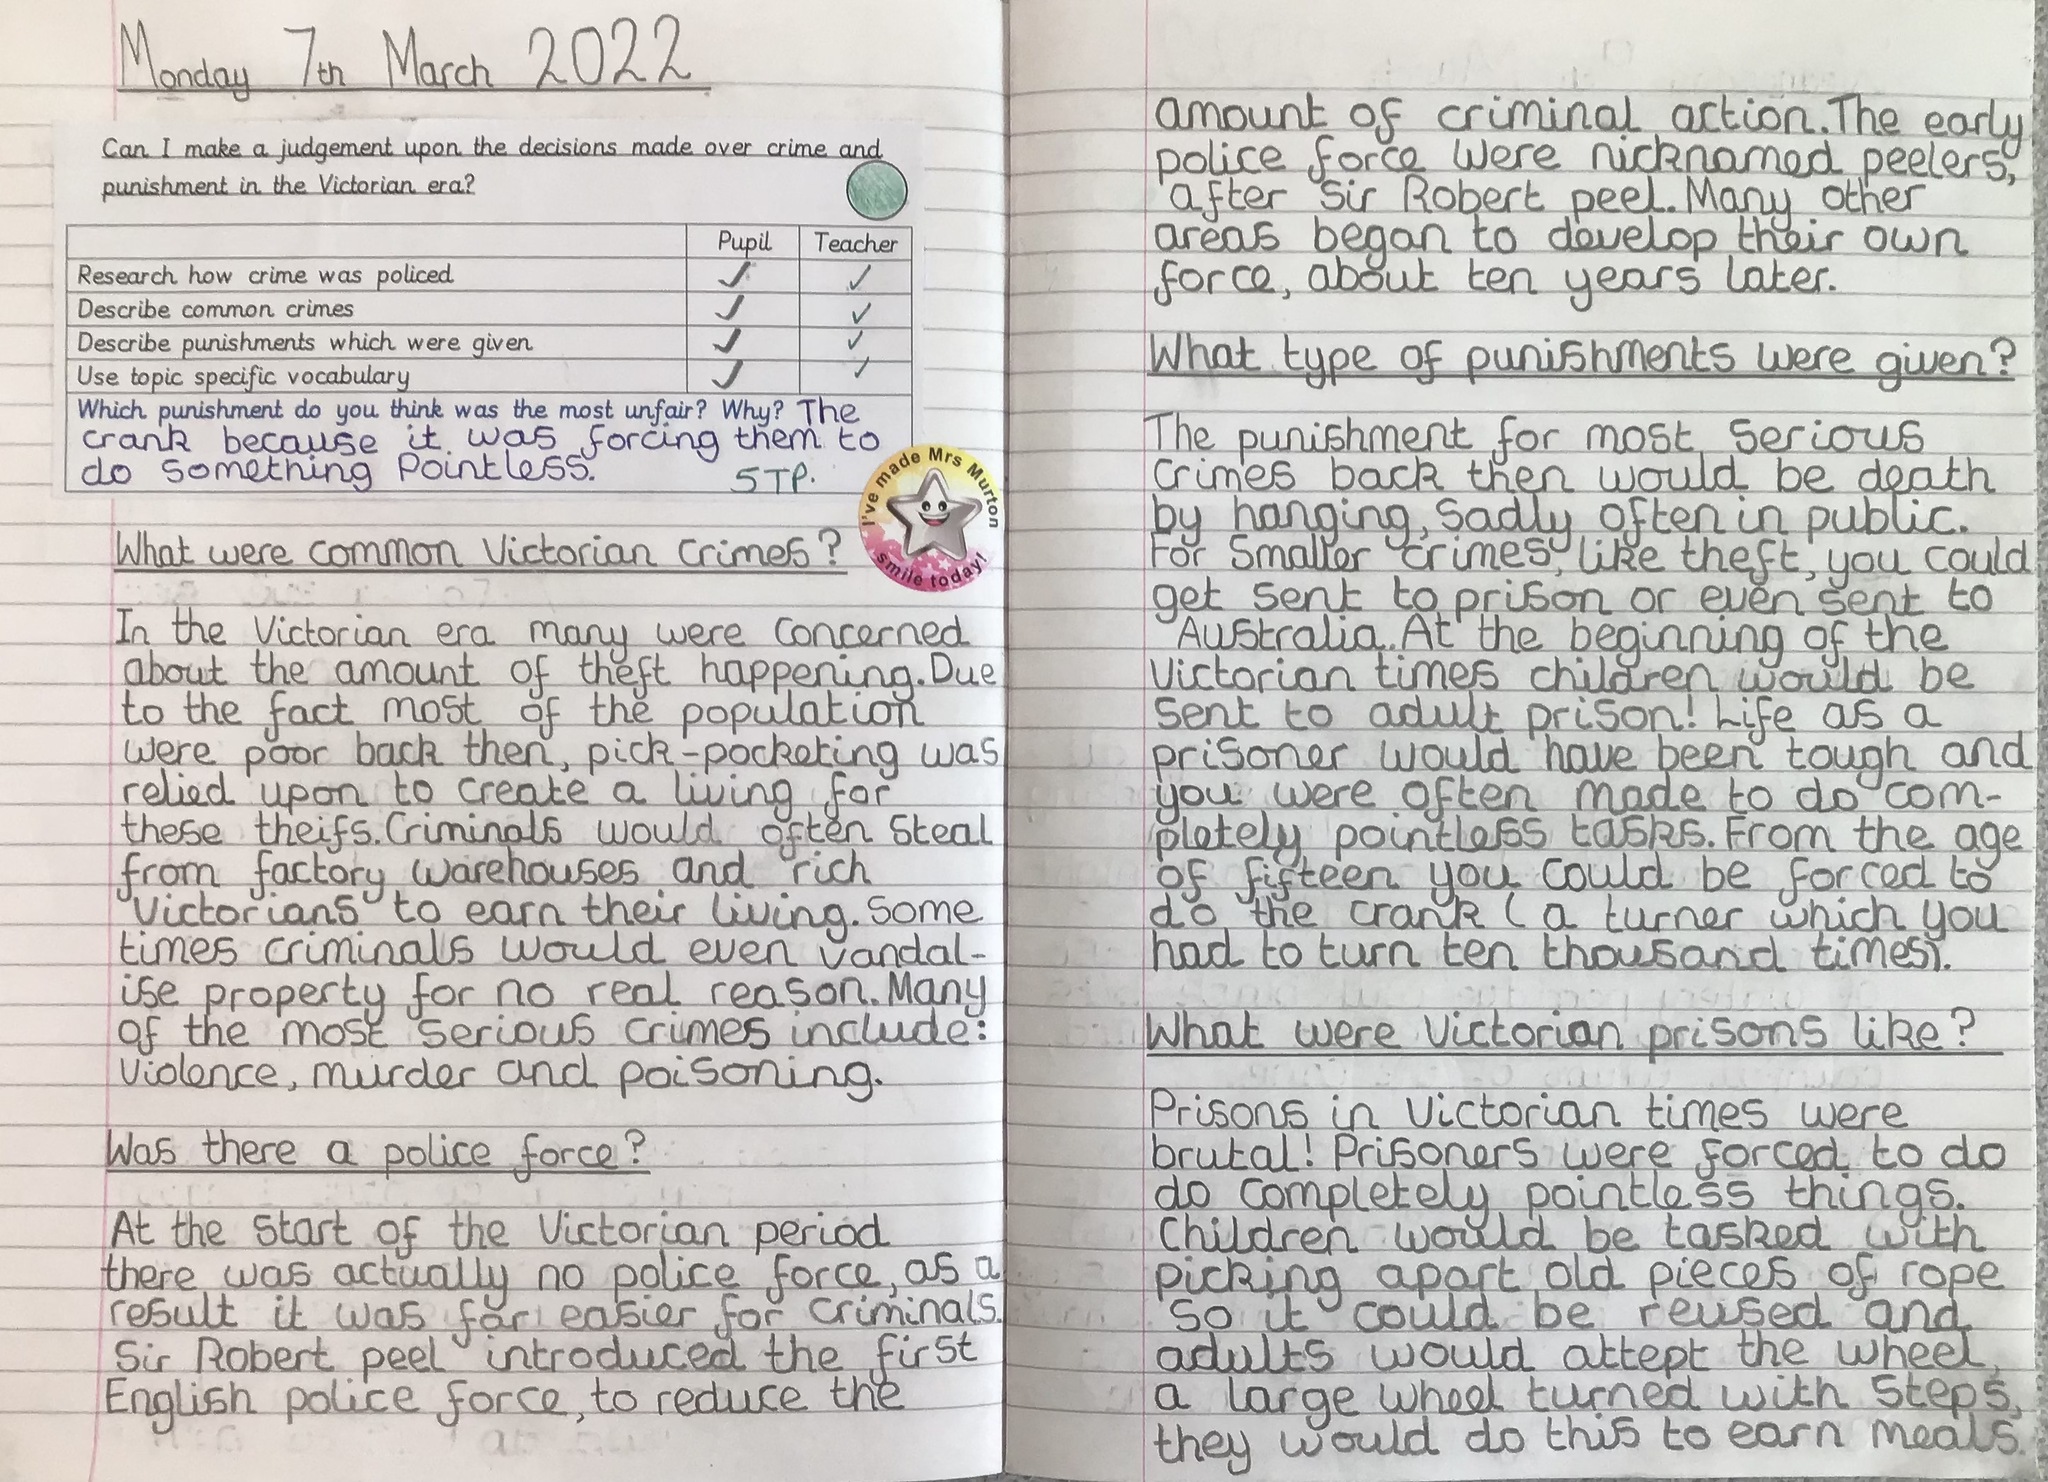 Monday 7th March 2022
Can I make a judgement upon the decisions made over crime and
punishment in the Victorian era?
Pupil Teacher
Research how crime was policed ✓ ✓
Describe common crimes ✓ ✓
Describe punishments which were given ✓ ✓
Use topic specific vocabulary ✓ ✓
Which punishment do you think was the most unfair? Why? The
crank because it was forcing them to
do something Pointless.
STP.
I've made Mrs Murton
smile today!
What were common Victorian Crimes?
In the Victorian era many were concerned
about the amount of theft happening. Due
to the fact most of the population
were poor back then, pick-pocketing was
relied upon to create a living for
these theifs. Criminals would often steal
from factory warehouses and rich
Victorians to earn their living. Some
times criminals would even vandal-
ise property for no real reason. Many
of the most serious crimes include:
Violence, murder and poisoning.
Was there a police force?
At the start of the Victorian period
there was actually no police force, as a
result it was far easier for criminals.
Sir Robert peel introduced the first
English police force, to reduce the
amount of criminal action. The early
police force were nicknamed peelers,
after Sir Robert peel. Many other
areas began to develop their own
force, about ten years later.
What type of punishments were given?
The punishment for most serious
crimes back then would be death
by hanging, sadly often in public.
For smaller crimes, like theft, you could
get sent to prison or even sent to
Australia. At the beginning of the
Victorian times children would be
sent to adult prison! Life as a
prisoner would have been tough and
you were often made to do com-
pletely pointless tasks. From the age
of fifteen you could be forced to
do the crank (a turner which you
had to turn ten thousand times).
What were Victorian prisons like?
Prisons in Victorian times were
brutal! Prisoners were forced to do
do completely pointless things.
Children would be tasked with
picking apart old pieces of rope
so it could be reused and
adults would attept the wheel,
a large wheel turned with steps,
they would do this to earn meals.